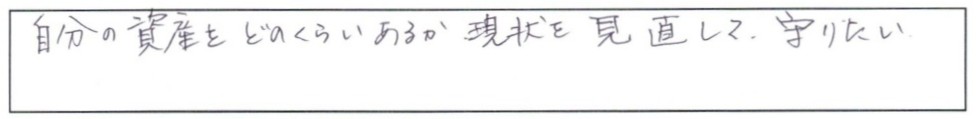 自分の資産をどのくらいあるか現状を見直して、守りたい